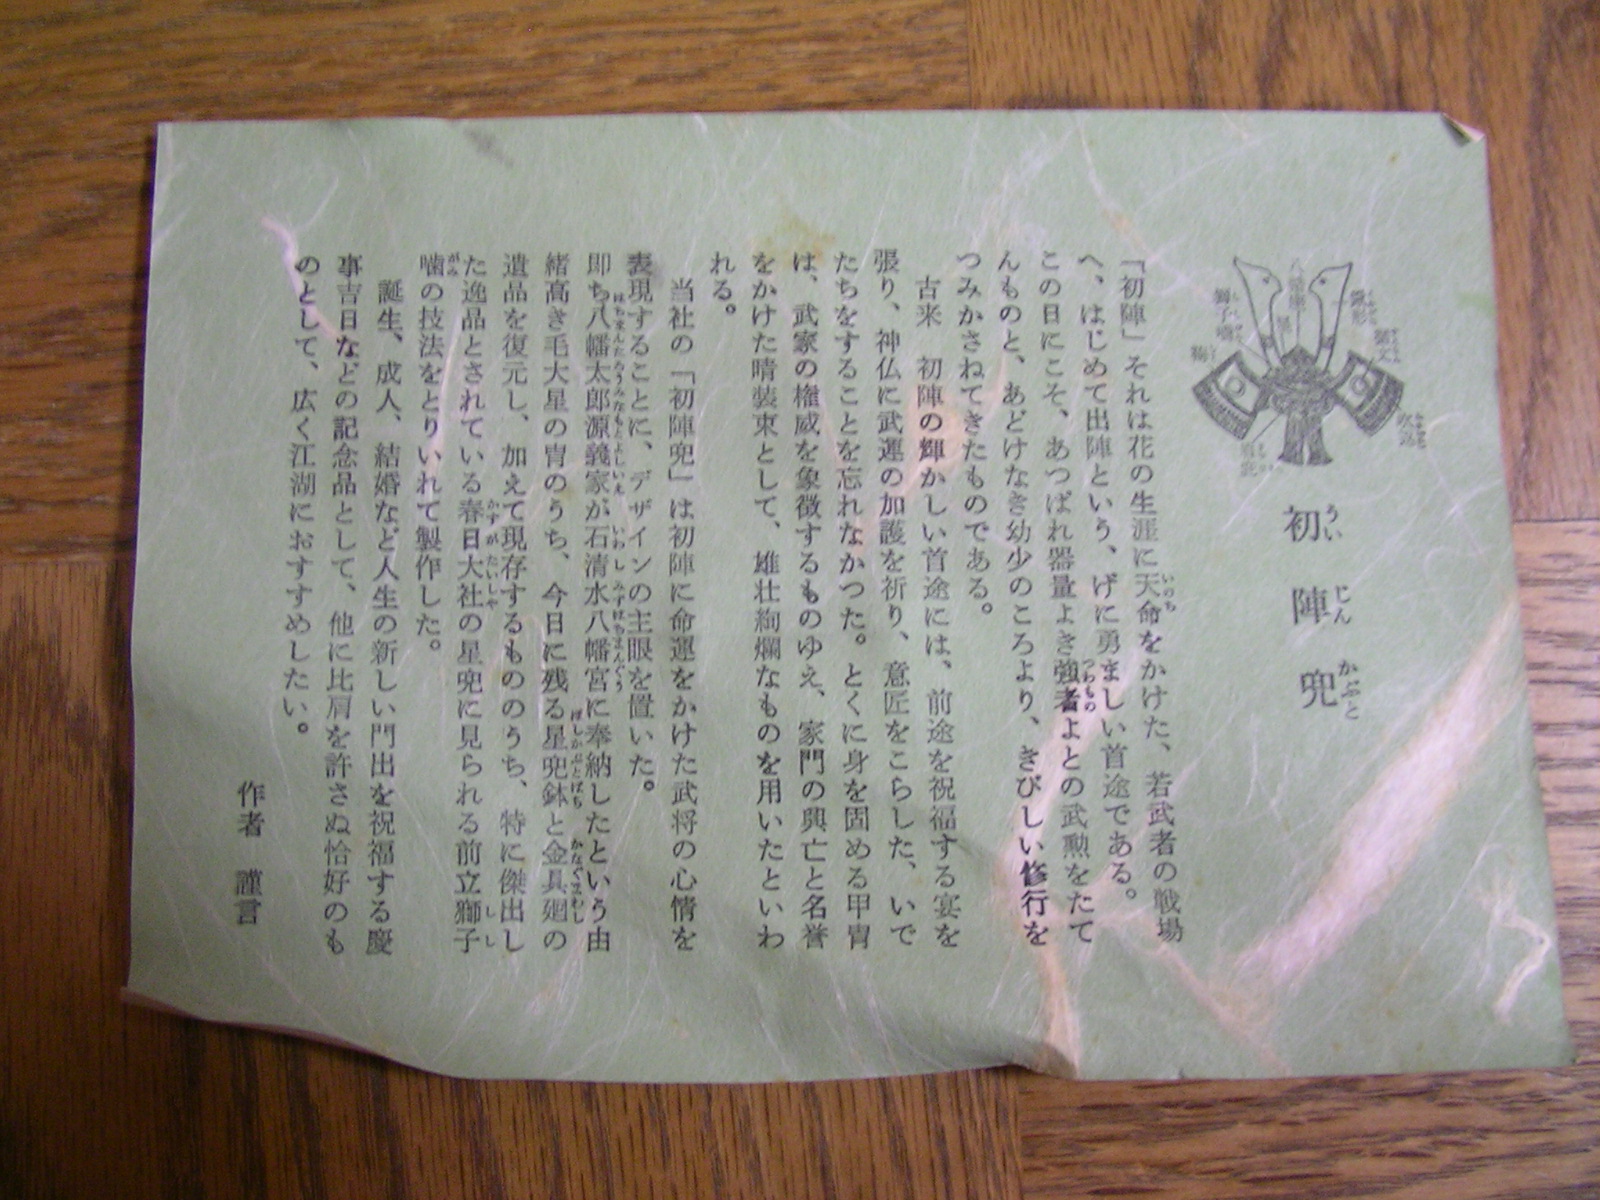 初陣兜
うい じん かぶと
「初陣」それは花の生涯に天命をかけた、若武者の戦場
いのち
へ、はじめて出陣という、げに勇ましい首途である。
この日にこそ、あつぱれ器量よき強者よとの武勲をたて
つわもの
んものと、あどけなき幼少のころより、きびしい修行を
つみかさねてきたものである。
古来 初陣の輝かしい首途には、前途を祝福する宴を
張り、神仏に武運の加護を祈り、意匠をこらした、いで
たちをすることを忘れなかつた。とくに身を固める甲冑
は、武家の権威を象徴するものゆえ、家門の興亡と名誉
をかけた晴装束として、雄壮絢爛なものを用いたといわ
れる。
当社の「初陣兜」は初陣に命運をかけた武将の心情を
表現することに、デザインの主眼を置いた。
即ち八幡太郎源義家が石清水八幡宮に奉納したという由
はちまんたろうみなもとよしいえ いわしみずはちまんぐう
緒高き毛大星の冑のうち、今日に残る星兜鉢と金具廻の
ほしかぶとばち かなぐまわし
遺品を復元し、加えて現存するもののうち、特に傑出し
た逸品とされている春日大社の星兜に見られる前立獅子
かすがたいしや しし
噛の技法をとりいれて製作した。
がみ
誕生、成人、結婚など人生の新しい門出を祝福する慶
事吉日などの記念品として、他に比肩を許さぬ恰好のも
のとして、広く江湖におすすめしたい。
作者 謹言